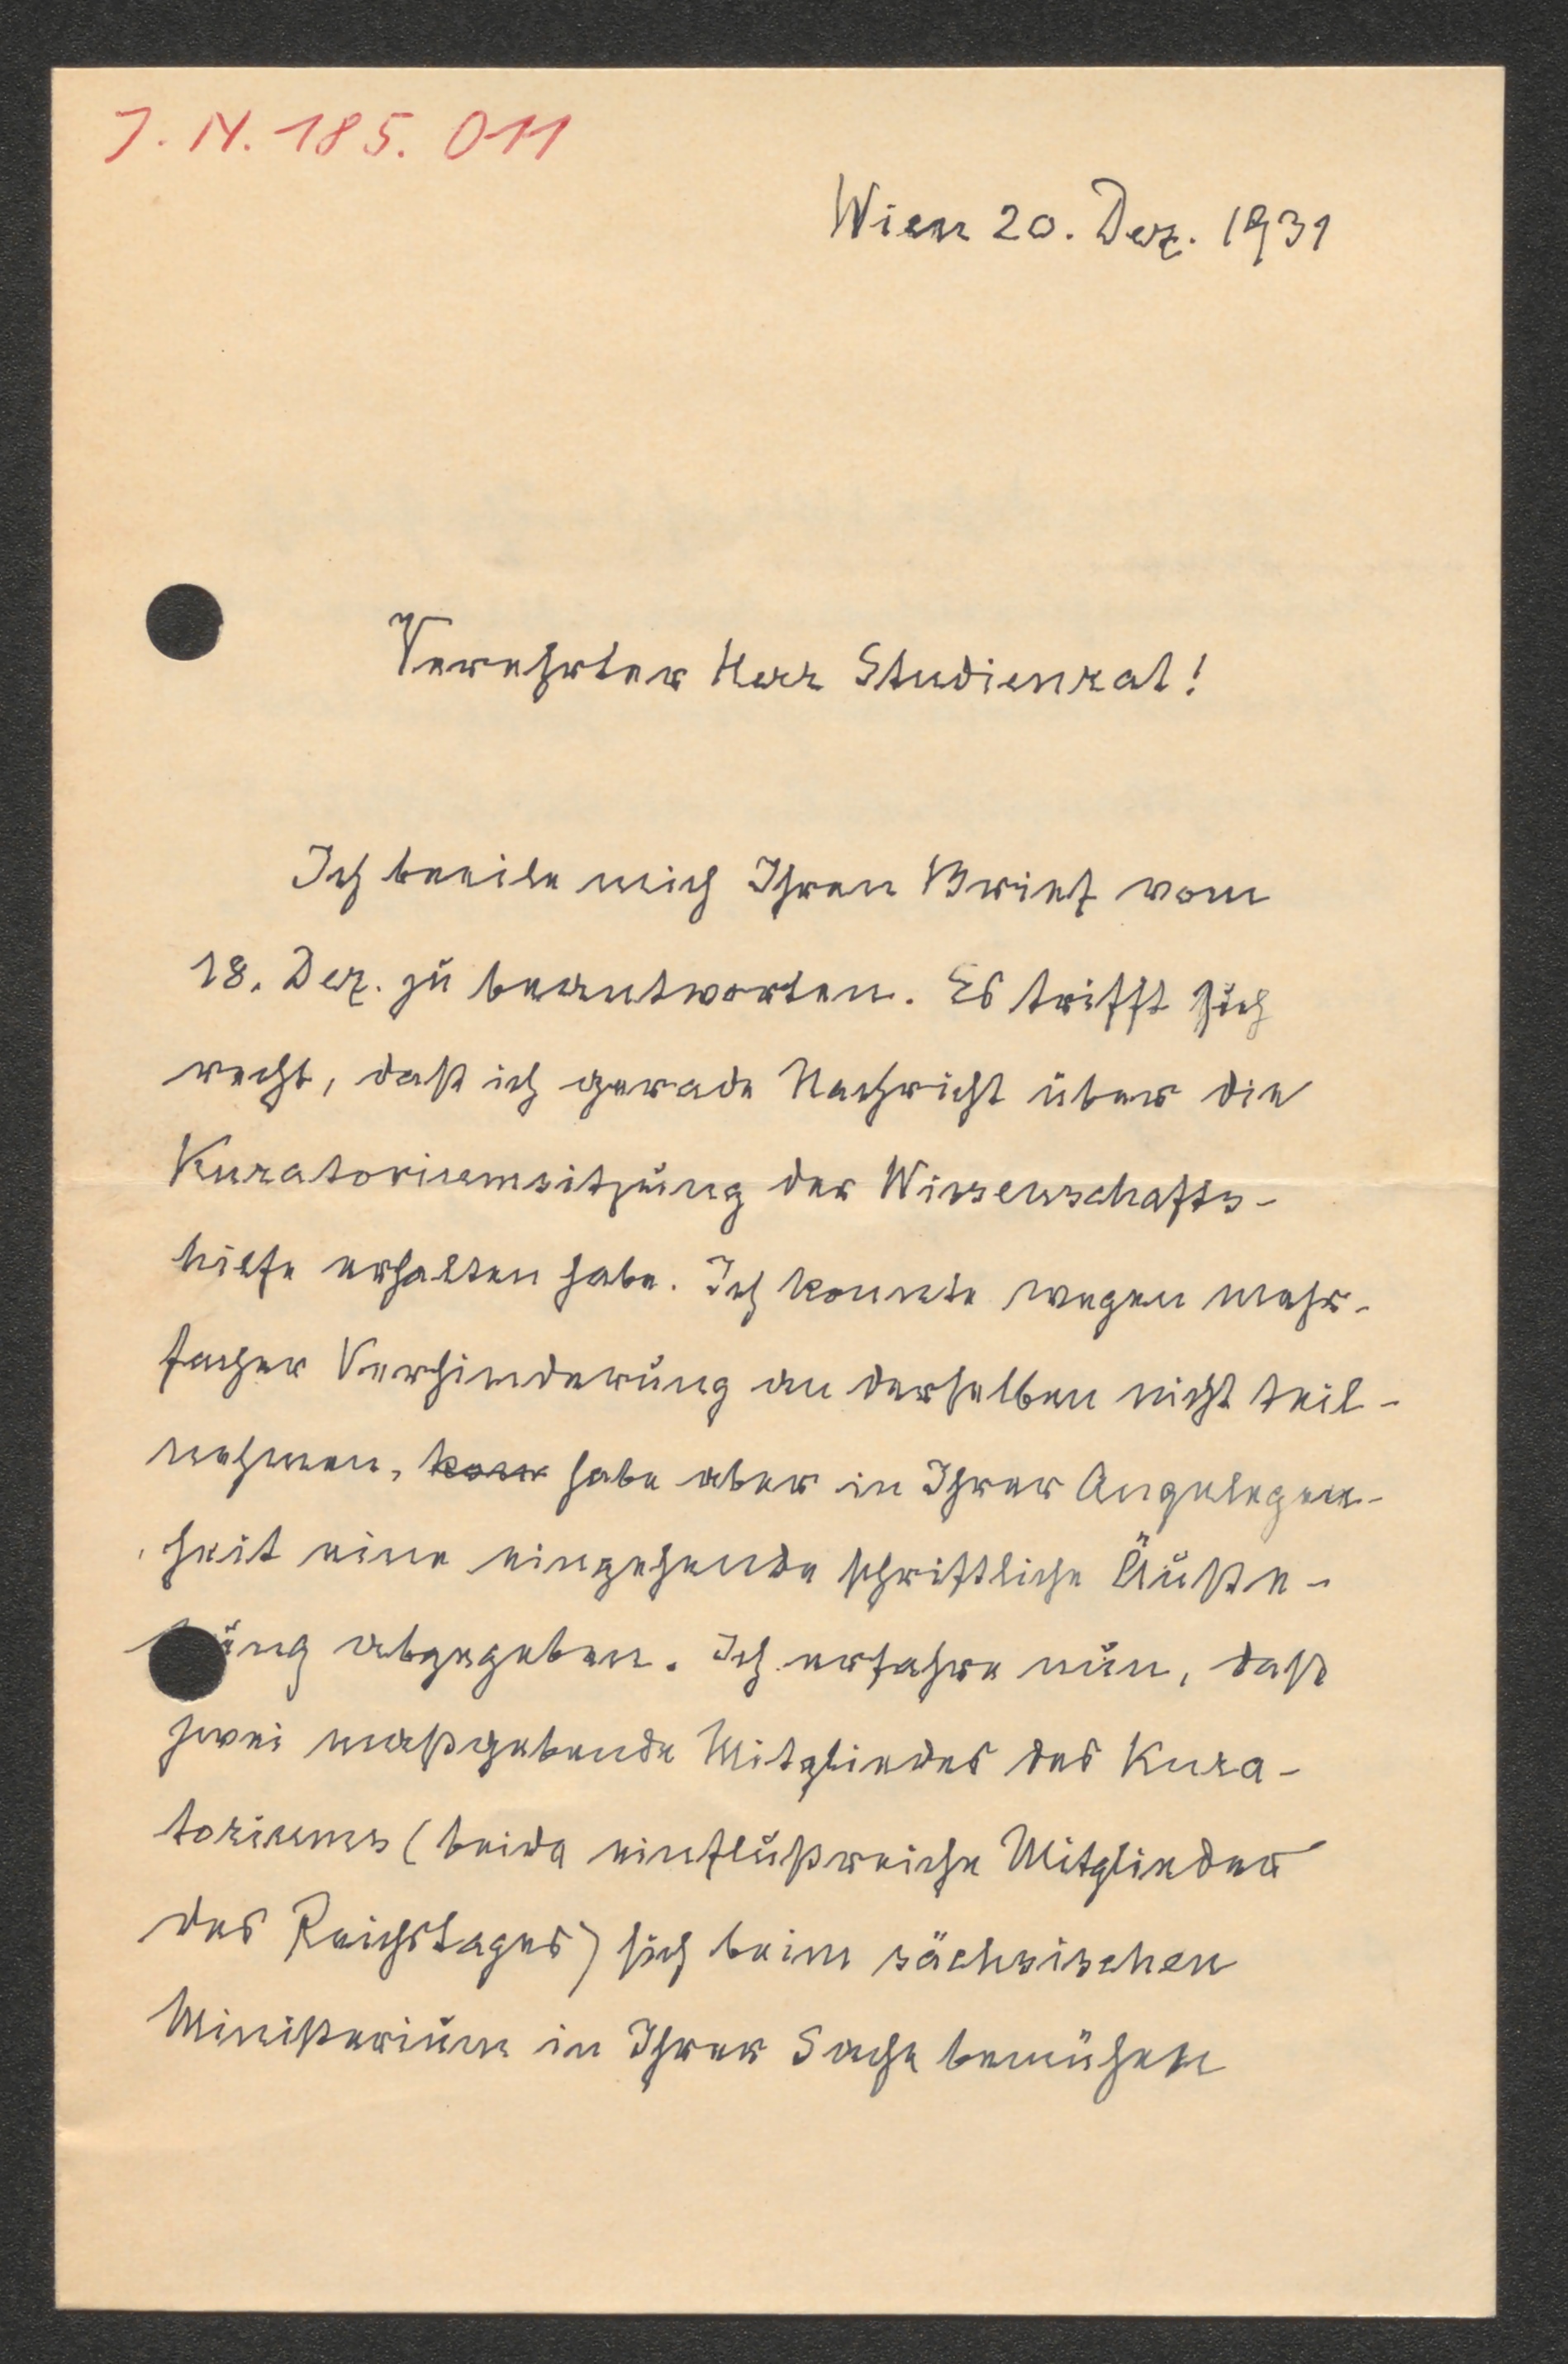 J. N. 185. 011
Wien 20. Dez. 1931
Verehrter Herr Studienrat!
Ich beeile mich Ihren Brief vom
18. Dez. zu beantworten. Es trifft sich
recht, daß ich gerade Nachricht über die
Kuratoriumssitzung der Wissenschafts-
hilfe erhalten habe. Ich konnte wegen mehr-
facher Verhinderung an derselben nicht teil-
nehmen, habe aber in Ihrer Angelegen-
heit eine eingehende schriftliche Äuße-
rung abgegeben. Ich erfahre nun, daß
zwei maßgebende Mitglieder des Kura-
toriums (beide einflußreiche Mitglieder
des Reichstages) sich beim sächsischen
Ministerium in Ihrer Sache bemühen